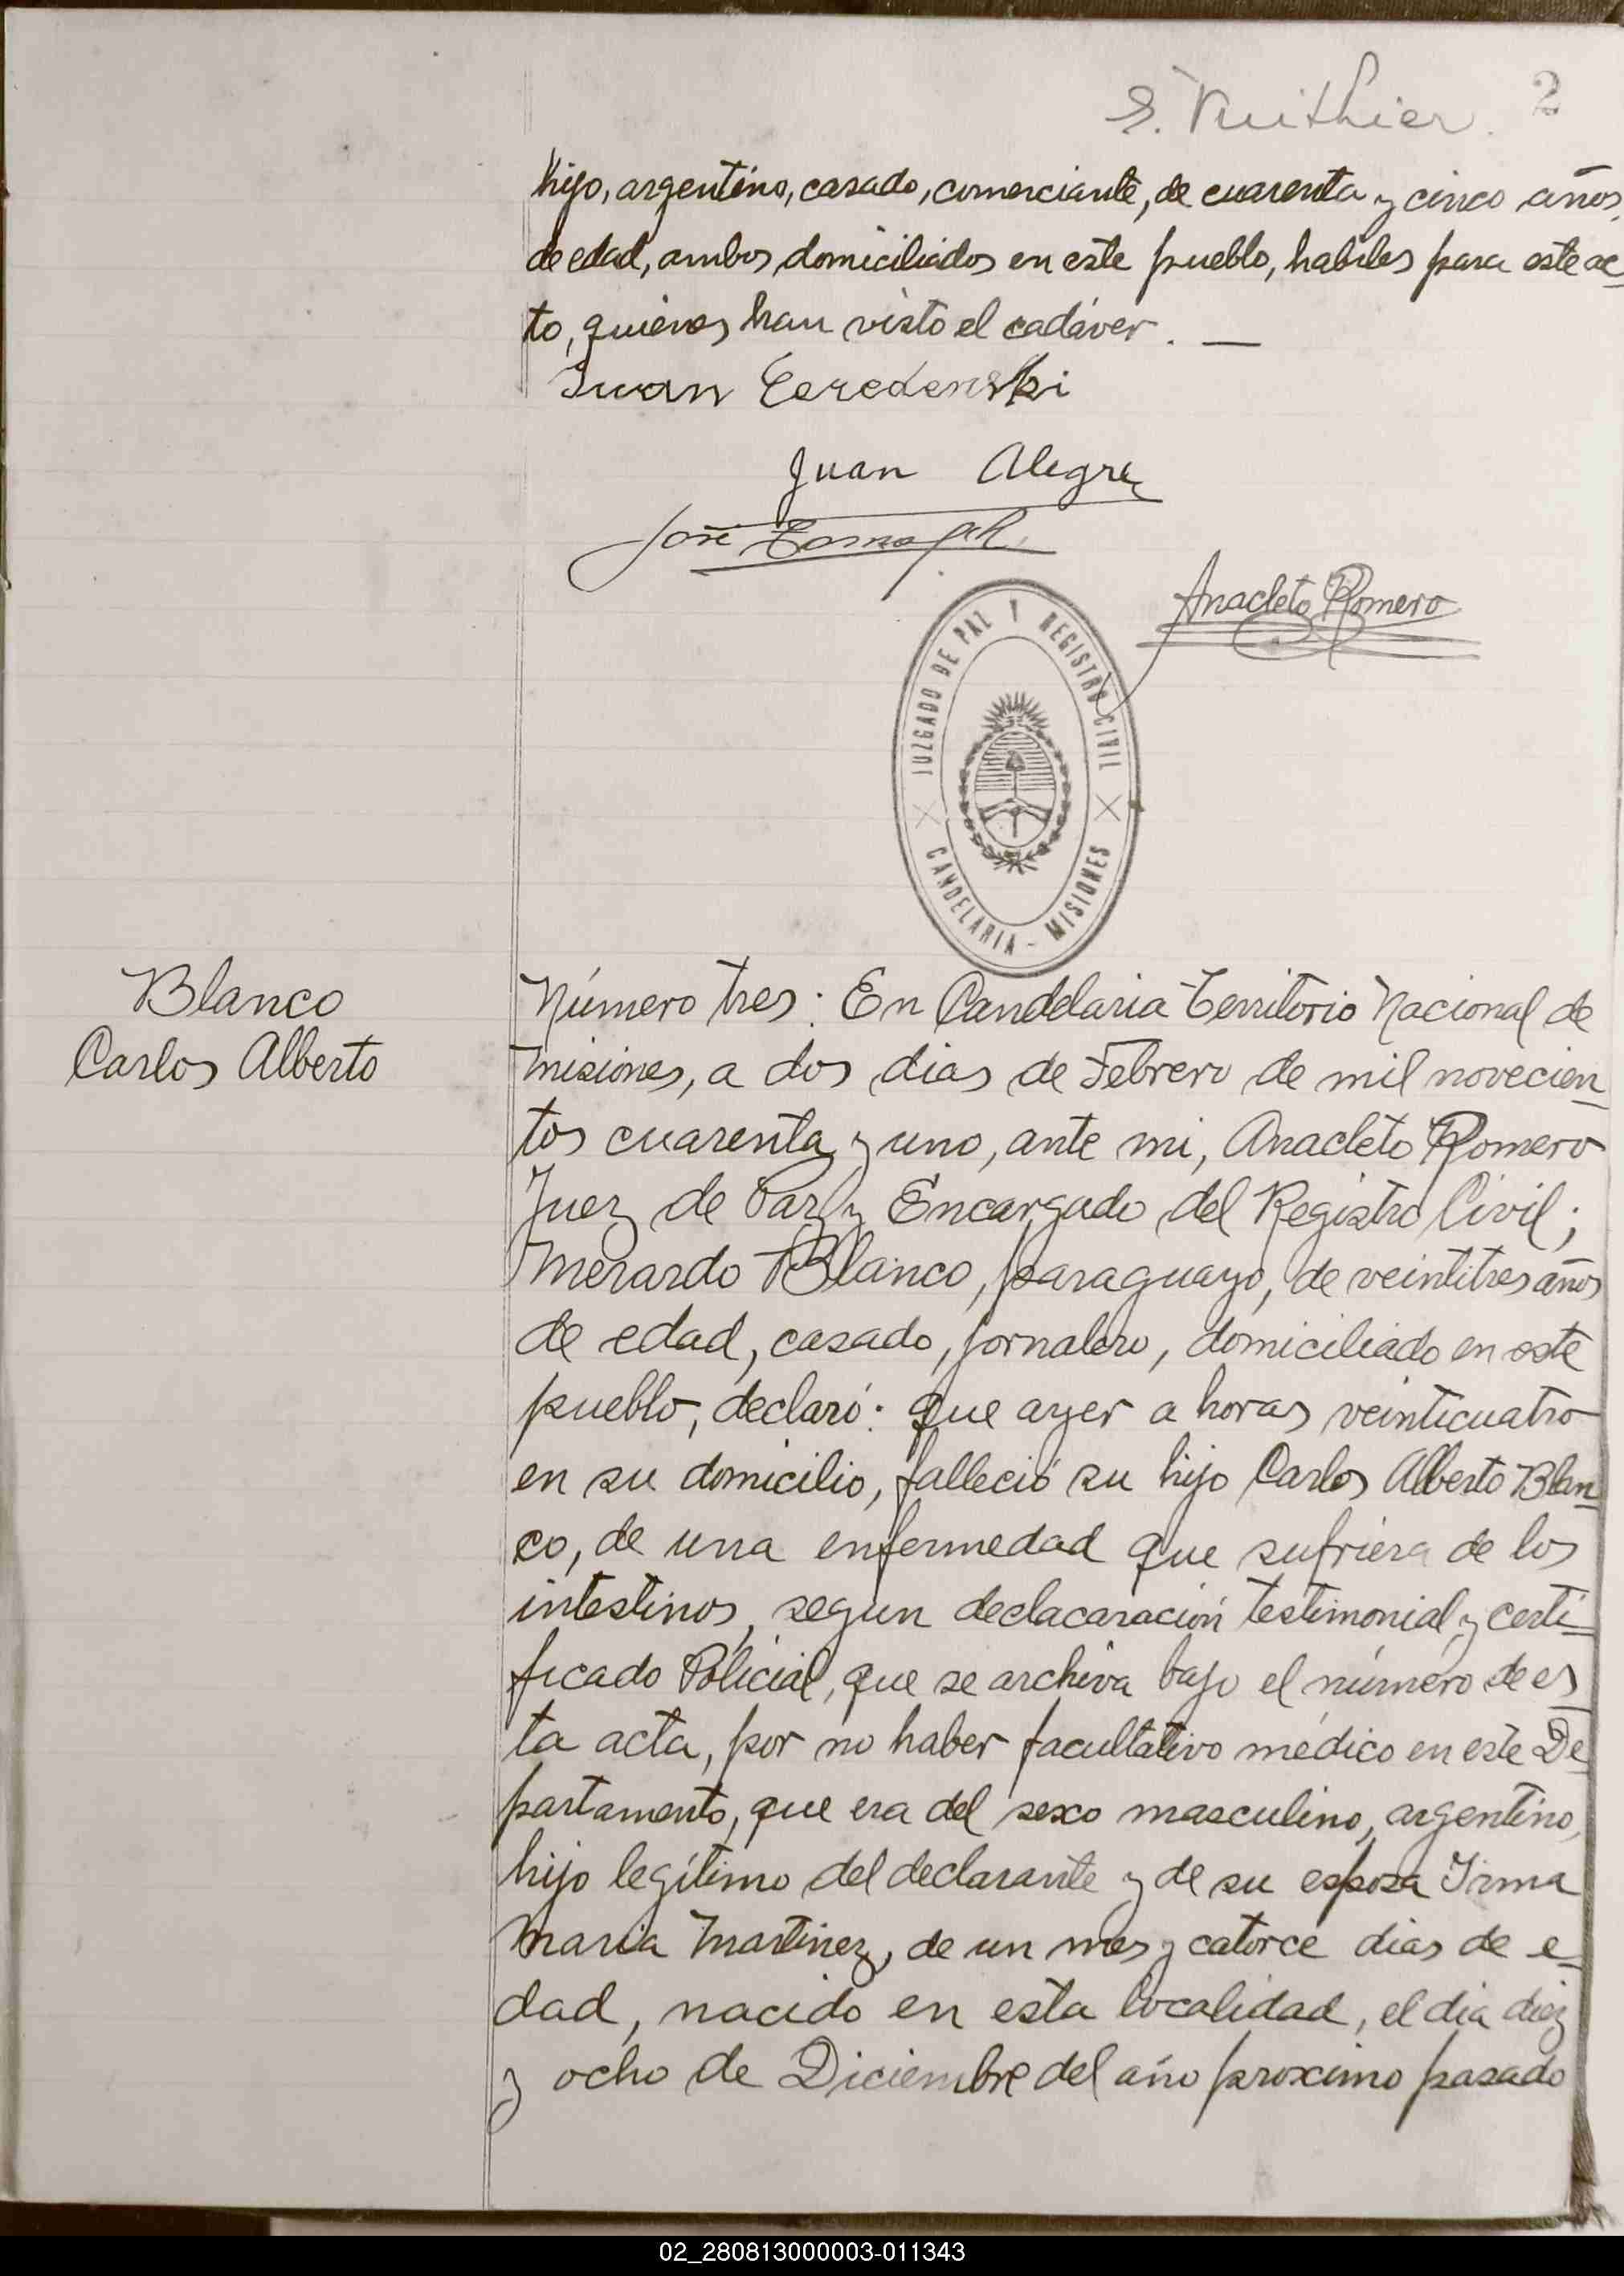 2
hijo, argentino, casado, comerciante, de cuarenta y cinco años
de edad, ambos domiciliados en este pueblo, habiles para este ac
to, quienes han visto el cadáver. —
Juan Alegre
José
Anacleto Romero
JUZGADO DE PAZ Y REGISTRO CIVIL
CANDELARIA - MISIONES
Blanco
Carlos Alberto
Número tres: En Candelaria Territorio Nacional de
Misiones, a dos dias de Febrero de mil novecien
tos cuarenta y uno, ante mi, Anacleto Romero
Juez de Paz y Encargado del Registro Civil;
Merardo Blanco, paraguayo, de veintitres años
de edad, casado, jornalero, domiciliado en este
pueblo, declaró: que ayer a horas veinticuatro
en su domicilio, falleció su hijo Carlos Alberto Blan
co, de una enfermedad que sufriera de los
intestinos, segun declacaración testimonial y certi
ficado Policial, que se archiva bajo el número de es
ta acta, por no haber facultativo médico en este De
partamento, que era del sexo masculino, argentino,
hijo legítimo del declarante y de su esposa Irma
Maria Martinez, de un mes y catorce dias de e
dad, nacido en esta localidad, el dia diez
y ocho de Diciembre del año proximo pasado
02_280813000003-011343